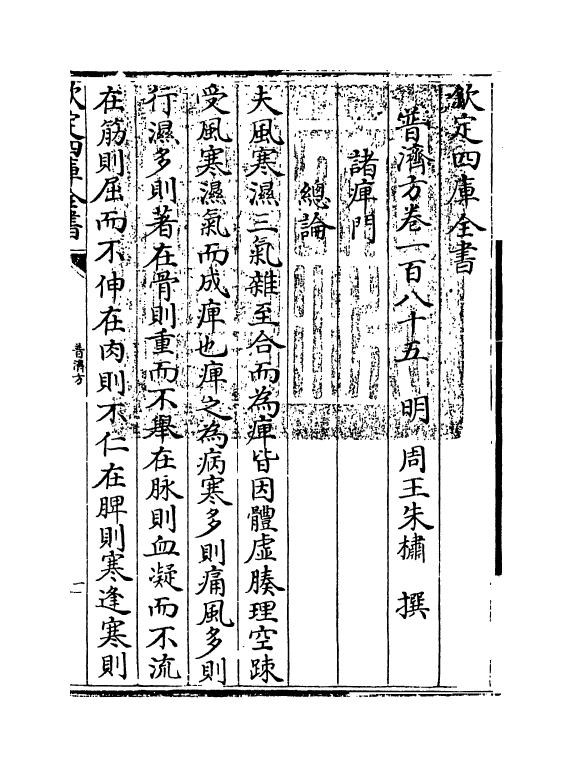 欽定四庫全書
普濟方卷一百八十五 明 周王朱橚 撰
諸痺門
總論
夫風寒濕三氣雜至合而為痺皆因體虛腠理空疎
受風寒濕氣而成痺也痺之為病寒多則痛風多則
行濕多則著在骨則重而不舉在脉則血凝而不流
在筋則屈而不伸在肉則不仁在脾則寒逢寒則
欽定四庫全書
普濟方